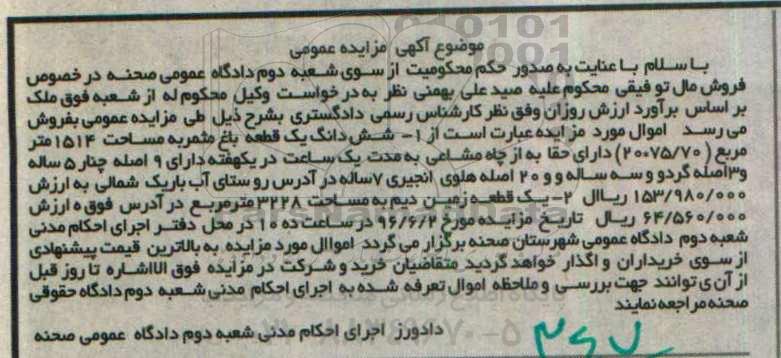 موضوع آگهی مزایده عمومی
با سلام با عنایت به صدور حکم محکومیت از سوی شعبه دوم دادگاه عمومی صحنه در خصوص
فروش مال توقیفی محکوم علیه صید علی بهمنی نظر به درخواست وکیل محکوم له از شعبه فوق ملک
بر اساس برآورد ارزش روزان وفق نظر کارشناس رسمی دادگستری بشرح ذیل طی مزایده عمومی بفروش
می رسد اموال مورد مزایده عبارت است از ۱- شش دانگ یک قطعه باغ مثمربه مساحت ۱۵۱۴ متر
مربع (۲۰۰۷۵/۷۰) دارای حقا به از چاه مشاعی به مدت یک ساعت در یکهفته دارای ۹ اصله چنار ۵ ساله
و۳اصله گردو و سه ساله و و ۲۰ اصله هلوی انجیری ۷ساله در آدرس روستای آب باریک شمالی به ارزش
۱۵۳/۹۸۰/۰۰۰ ریاال ۲-یک قطعه زمین دیم به مساحت ۳۲۲۸مترمربع در آدرس فوق ه ارزش
۶۴/۵۶۰/۰۰۰ ریال تاریخ مزایده مورخ ۹۶/۶/۲ در ساعت ده ۱۰ در محل دفتر اجرای احکام مدنی
شعبه دوم دادگاه عمومی شهرستان صحنه برگزار می گردد امواال مورد مزایده به بالاترین قیمت پیشنهادی
از سوی خریداران و اگذار خواهد گردید متقاضیان خرید و شرکت در مزایده فوق الااشاره تا روز قبل
از آن ی توانند جهت بررسی و ملاحظه اموال تعرفه شده به اجرای احکام مدنی شعبه دوم دادگاه حقوقی
صحنه مراجعه نمایند
دادورز اجرای احکام مدنی شعبه دوم دادگاه عمومی صحنه